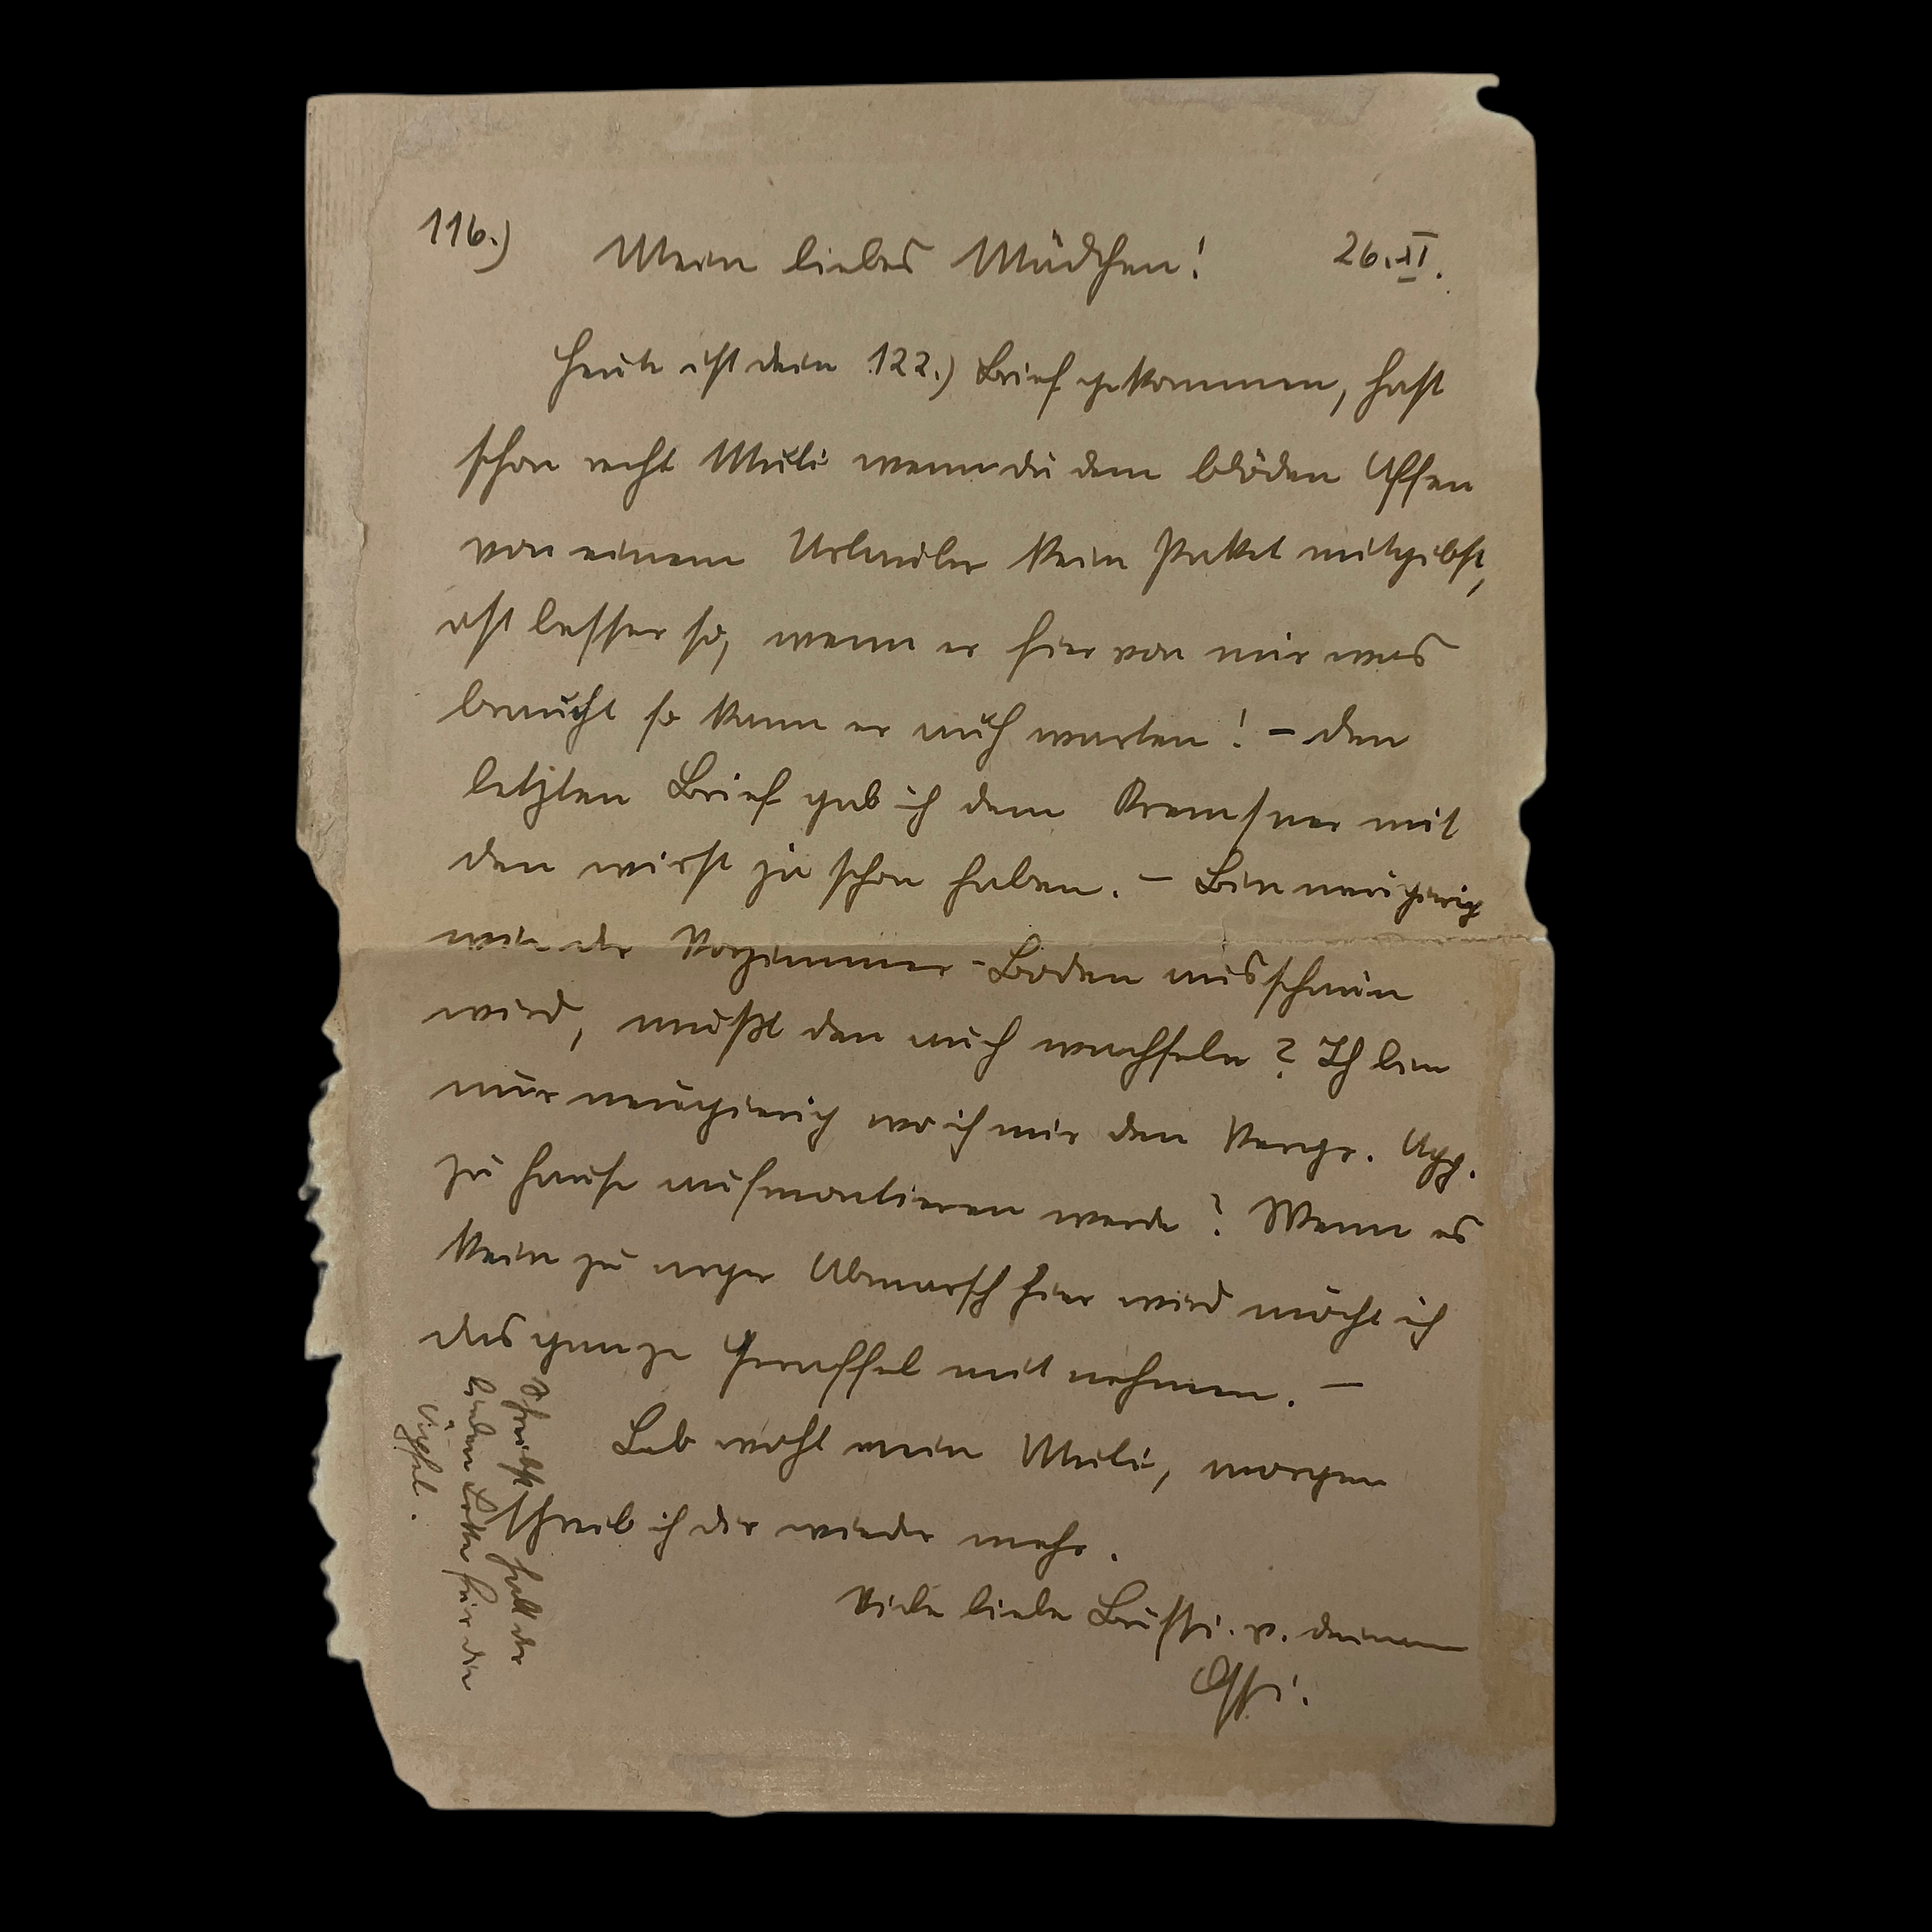 116.) Mein liebes Mädchen! 26.XI.
Heute ist dein 122.) Brief gekommen, hast
schon recht Muli wenn du dem blöden Affen
von einem Urlauber kein Paket mitgibst,
ist besser so, wenn er hier von mir was
braucht so kann er auch warten! - den
letzten Brief gab ich dem Kremsner mit
den wirst ja schon haben. - Bin neugierig
wie der Vorzimmer-Boden ausschaun
wird, mußt den auch wachseln? Ich bin
nur neugierig wo ich mir den Vergr. App.
zu Hause aufmontieren werde? Wenn es
kein zu arger Abmarsch hier wird möcht ich
das ganze Graffel mit nehmen. -
Leb wohl mein Muli, morgen
schreib ich dir wieder mehr.
Viele liebe Bussi. v. deinem
Ossi.
Schreibst halt der
lieben Lotte für die